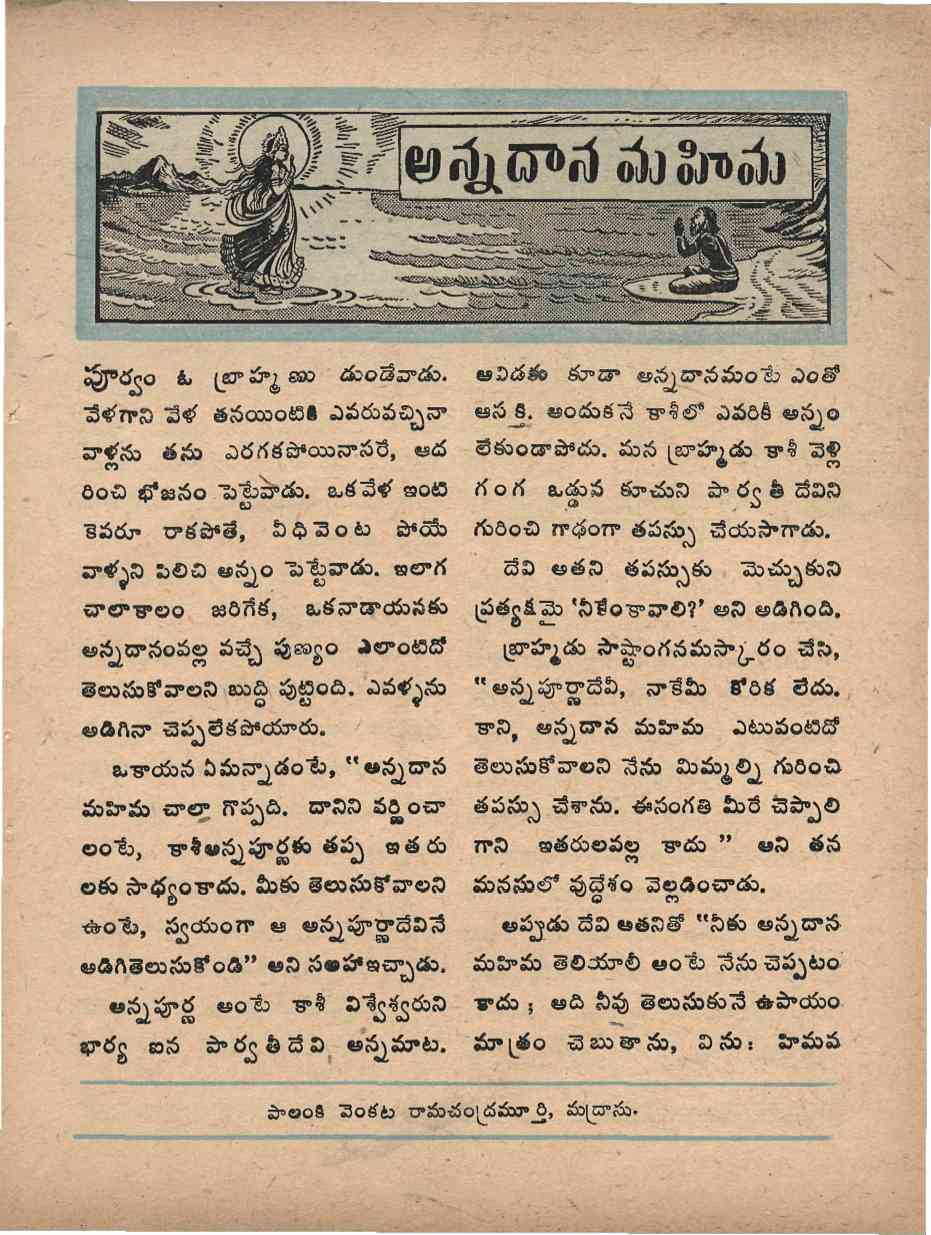 అన్నదాన మహిమ
పూర్వం ఓ బ్రాహ్మణు డుండేవాడు.
వేళగాని వేళ తనయింటికి ఎవరువచ్చినా
వాళ్లను తను ఎరగకపోయినాసరే, ఆద
రించి భోజనం పెట్టేవాడు. ఒకవేళ ఇంటి
కెవరూ రాకపోతే, వీధివెంట పోయే
వాళ్ళని పిలిచి అన్నం పెట్టేవాడు. ఇలాగ
చాలాకాలం జరిగేక, ఒకనాడాయనకు
అన్నదానంవల్ల వచ్చే పుణ్యం ఎలాంటిదో
తెలుసుకోవాలని బుద్ధి పుట్టింది. ఎవళ్ళను
అడిగినా చెప్పలేకపోయారు.
ఒకాయన ఏమన్నాడంటే, “అన్నదాన
మహిమ చాలా గొప్పది. దానిని వర్ణించా
లంటే, కాశీఅన్నపూర్ణకు తప్ప ఇతరు
లకు సాధ్యంకాదు. మీకు తెలుసుకోవాలని
ఉంటే, స్వయంగా ఆ అన్నపూర్ణాదేవినే
అడిగితెలుసుకోండి” అని సలహాఇచ్చాడు.
అన్నపూర్ణ అంటే కాశీ విశ్వేశ్వరుని
భార్య ఐన పార్వతీదేవి అన్నమాట.
ఆవిడకు కూడా అన్నదానమంటే ఎంతో
ఆసక్తి. అందుకనే కాశీలో ఎవరికీ అన్నం
లేకుండాపోదు. మన బ్రాహ్మడు కాశీ వెళ్లి
గంగ ఒడ్డున కూచుని పార్వతీదేవిని
గురించి గాఢంగా తపస్సు చేయసాగాడు.
దేవి అతని తపస్సుకు మెచ్చుకుని
ప్రత్యక్షమై ‘నీకేంకావాలి?’ అని అడిగింది.
బ్రాహ్మడు సాష్టాంగనమస్కారం చేసి,
“అన్నపూర్ణాదేవీ, నాకేమీ కోరిక లేదు.
కాని, అన్నదాన మహిమ ఎటువంటిదో
తెలుసుకోవాలని నేను మిమ్మల్ని గురించి
తపస్సు చేశాను. ఈసంగతి మీరే చెప్పాలి
గాని ఇతరులవల్ల కాదు” అని తన
మనసులో వుద్దేశం వెల్లడించాడు.
అప్పుడు దేవి అతనితో “నీకు అన్నదాన
మహిమ తెలియాలీ అంటే నేను చెప్పటం
కాదు; అది నీవు తెలుసుకునే ఉపాయం
మాత్రం చెబుతాను, విను: హిమవ
పాలంకి వెంకట రామచంద్రమూర్తి, మద్రాసు.